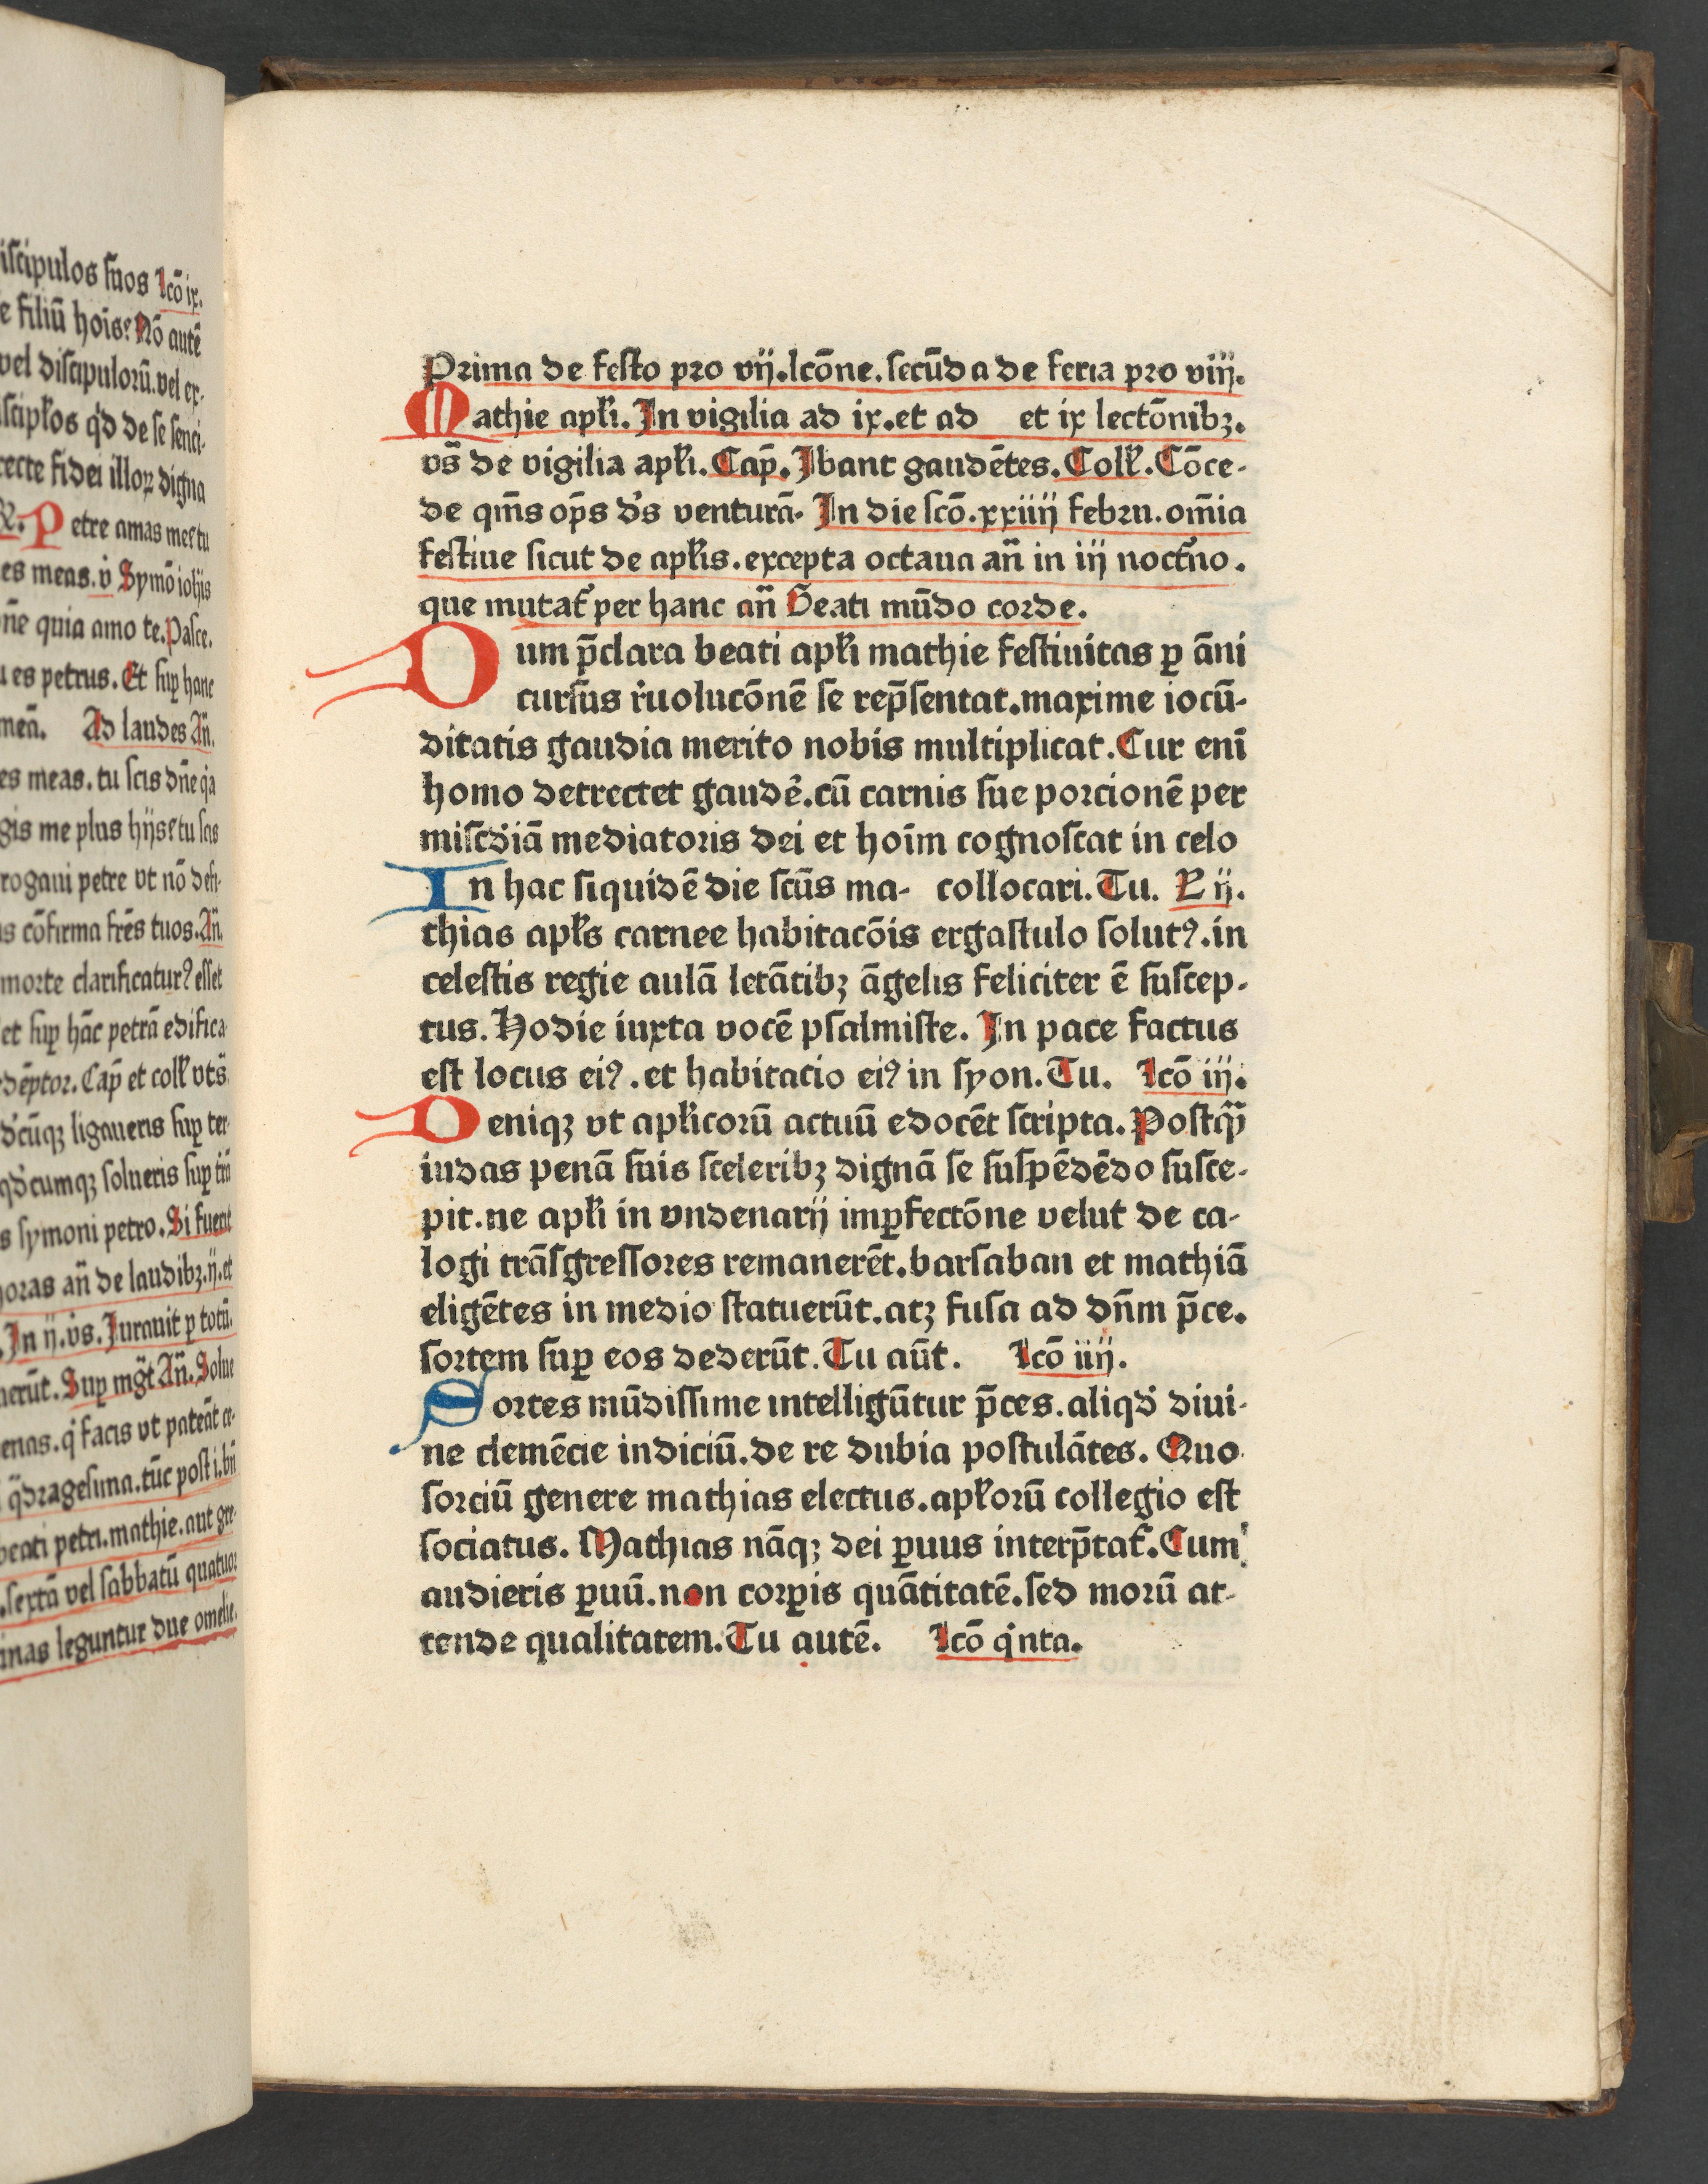 iſcipulos ſuos lcō ix.
e filiū hoīs? Nō autē
vel diſcipuloꝝ. vel er-
ſcipłos qď de ſe ſenci-
recte fidei illoꝝ digna
R. Petre amas me? tu
es meas. v̇ Symō
quia amo te. Paſce.
u es petrus. Et ſuꝑ hanc
meā. Ad laudes Añ.
es meas. tu ſcis dñe
gis me plus hijs? tu ſcis
rogaui petre vt nō defi-
cōfirma fr̄es tuos. Añ.
morte clarificaturꝰ eſſet
et ſuꝑ hāc petrā edifica
dēptor. Cap̄ et coll
ďcūqꝫ ligaueris ſuꝑ ter-
qďcumqꝫ ſolueris ſuꝑ
s ſymoni petro. Si fuerit
horas añ de laudibꝫ. ij. et
. In ij. v̇s. Jurauit ꝑ totū.
nerūt. Suꝑ mḡt Añ. Solue
enas. facis vt pateāt ce-
qďrageſima. tūc poſt
beati petri. mathie. aut gre-
. ſextā vel ſabbatū quatuor
leguntur due omelie.
Prima de feſto pro vij. lcōne. ſecūda de feria pro viij.
Mathie apłi. In vigilia ad ix. et ad et ix lectōnibꝫ.
vs̄ de vigilia apłi. Cap̄. Jbant gaudētes. Coll̄. Cōce-
de qm̄s op̄s ď's venturā. In die ſcō. xxiiij febru. om̄ia
feſtiue ſicut de apłis. excepta octaua añ in iij noct̄no.
que mutat̄ per hanc añ Beati mūdo corde.
Dum p̄clara beati apłi mathie feſtiuitas ꝑ āni
curſus r̓uolucōnē ſe rep̄ſentat. maxime iocū-
ditatis gaudia merito nobis multiplicat. Cur enī
homo detrectet gaudē̓. cū carnis ſue porcionē per
miſcďiā mediatoris dei et hoīm cognoſcat in celo
In hac ſiquidē die ſcūs ma- collocari. Tu. L ij.
thias apłs carnee habitacōis ergaſtulo ſolutꝰ. in
celeſtis regie aulā letātibꝫ āgelis feliciter ē ſuſcep-
tus. Hodie iuxta vocē pſalmiſte. In pace factus
eſt locus eiꝰ. et habitacio eiꝰ in ſyon. Tu. lcō iij.
Deniqꝫ vt apłicorū actuū edocēt ſcripta. Poſtqꝫ̄
iudas penā ſuis ſceleribꝫ dignā ſe ſuſpēdēdo ſuſce-
pit. ne apłi in vndenarij imꝑfectōne velut de ca-
logi trāſgreſſores remanerēt. barſaban et mathiā
eligētes in medio ſtatuerūt. atꝫ fuſa ad dñm p̄ce.
ſortem ſuꝑ eos dederūt. Tu aūt. lcō iiij.
Sortes mūdiſſime intelligūtur p̄ces. aliqď diui-
ne clemēcie indiciū. de re dubia poſtulātes. Quo
ſorciū genere mathias electus. apłorū collegio eſt
ſociatus. Mathias nāqꝫ dei ꝑuus interp̄tat̄. Cum
audieris ꝑuū. non corꝑis quātitatē. ſed morū at-
tende qualitatem. Tu autē. lcō qͥnta.